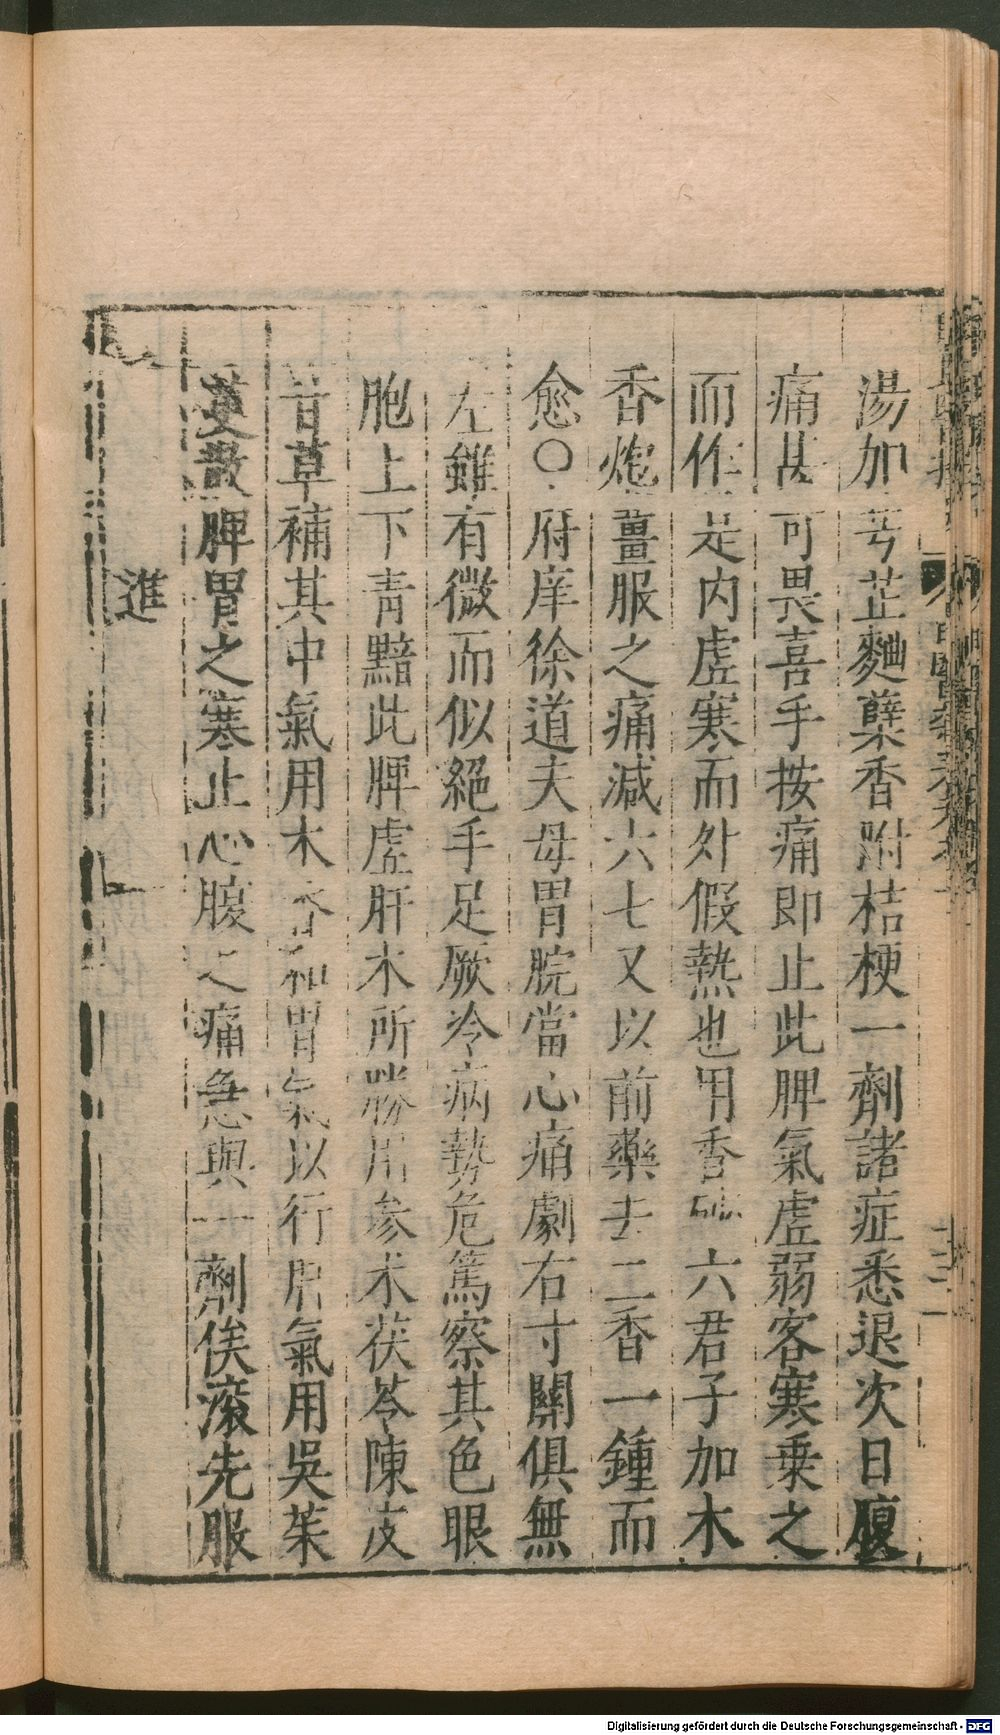 湯加芎芷麯蘗香附桔梗一劑諸症悉退次日腹
痛甚可畏喜手按痛即止此脾氣虛弱客寒乗之
而作是內虛寒而外假熱也用香六君子加木
香炮薑服之痛減六七又以前藥去二香一鍾而
愈○府庠徐道夫母胃脘當心痛劇右寸關俱無
左雖有微而似絕手足厥冷病勢危篤察其色眼
胞上下青黯此脾虛肝木所勝用參朮茯苓陳皮
甘草補其中氣用木香和胃氣以行肝氣用吳茱
萸散脾胃之寒止心腹之痛急與一劑俟滾先服
進
Digitalisierung gefördert durch die Deutsche Forschungsgemeinschaft - DFG